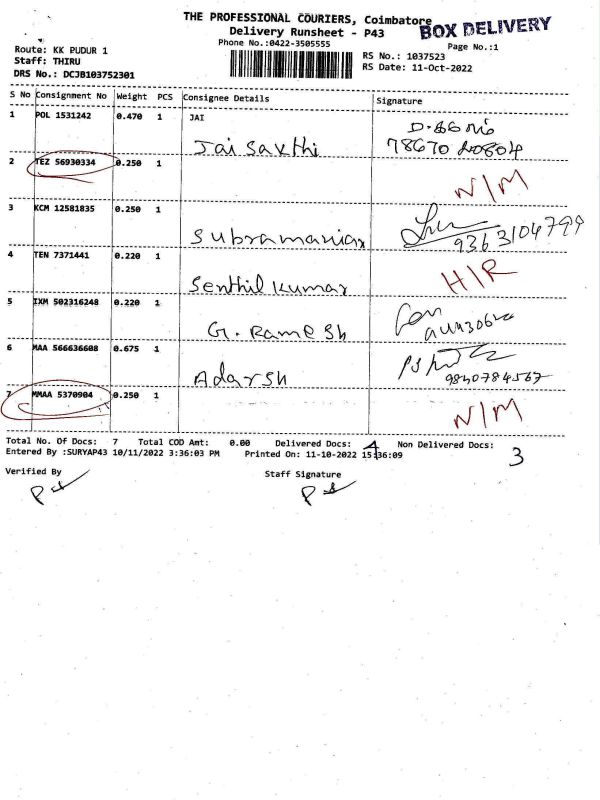 THE PROFESSIONAL COURIERS, Coimbatore
BOX DELIVERY
Delivery Runsheet - P43
Phone No.:0422-3505555
Page No.:1
Route: KK PUDUR 1
Staff: THIRU
DRS No.: DCJB103752301
RS No.: 1037523
RS Date: 11-Oct-2022
S No Consignment No Weight PCS Consignee Details Signature
1 POL 1531242 0.470 1 JAI
Jai Sakthi
2 TEZ 56930334 0.250 1
N/M
3 KCM 12581835 0.250 1
Subramanian 9363104799
4 TEN 7371441 0.220 1
Senthil kumar H/R
5 IXM 502316248 0.220 1
G. Ramesh
6 MAA 566636608 0.675 1
Adarsh 9840784567
7 MMAA 5370904 0.250 1
N/M
Total No. Of Docs: 7 Total COD Amt: 0.00 Delivered Docs: 4 Non Delivered Docs: 3
Entered By :SURYAP43 10/11/2022 3:36:03 PM Printed On: 11-10-2022 15:36:09
Verified By Staff Signature